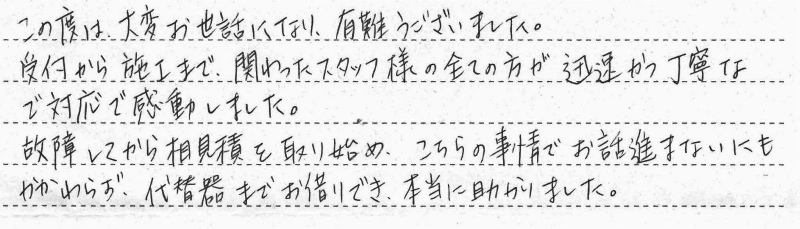 この度は、大変お世話になり、有難うございました。
受付から施工まで、関わったスタッフ様の全ての方が迅速かつ丁寧な
で対応で感動しました。
故障してから相見積を取り始め、こちらの事情でお話進まないにも
かかわらず、代替器までお借りでき、本当に助かりました。